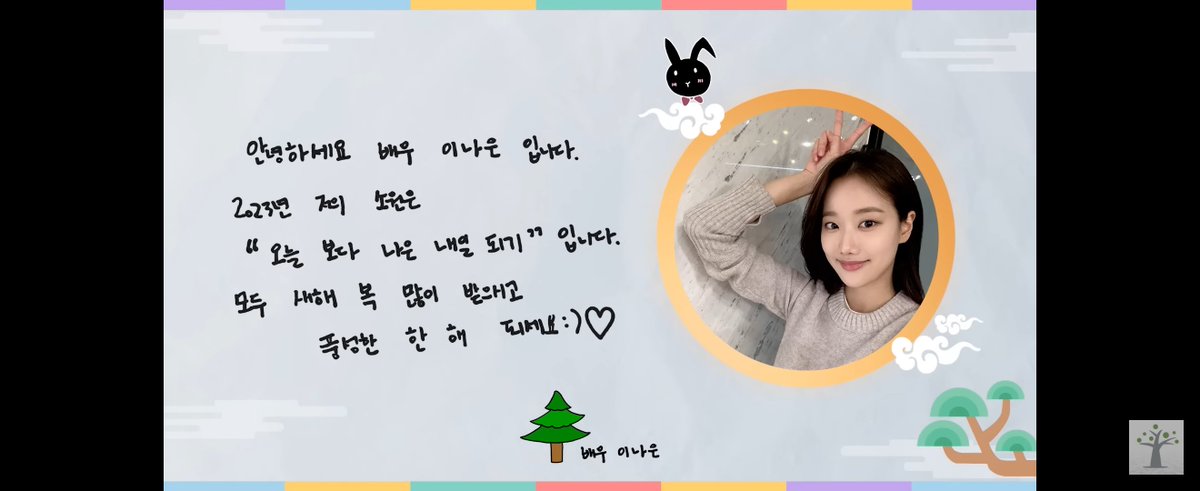 안녕하세요 배우 이나은 입니다.
2023년 저의 소원은
“오늘 보다 나은 내일 되기” 입니다.
모두 새해 복 많이 받으시고
풍성한 한 해 되세요:)♡
배우 이나은